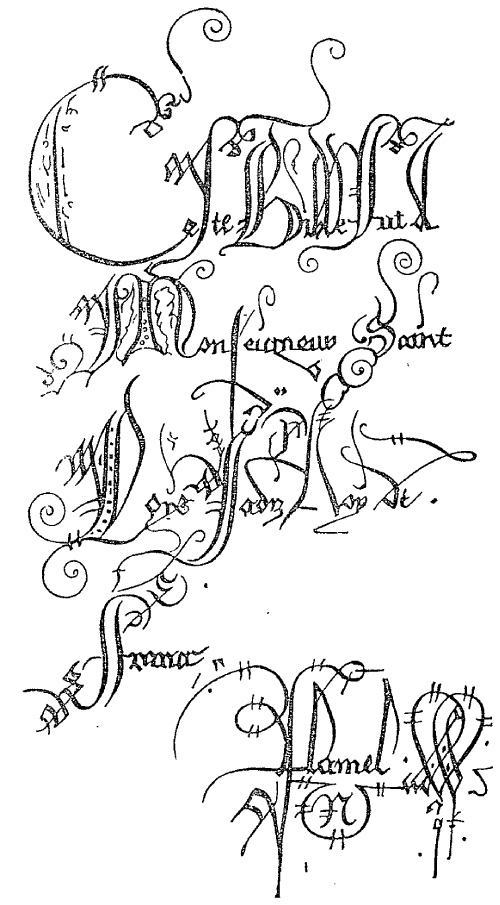 Ceste Bible fut a
Monseigneur Saint
Loys Jadiz Roy de .
France
Flamel